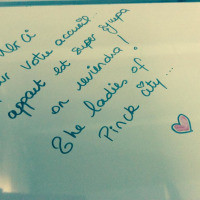 Merci
pour votre accueil...
appart est super sympa
on reviendra!
The ladies of
Pinck city...